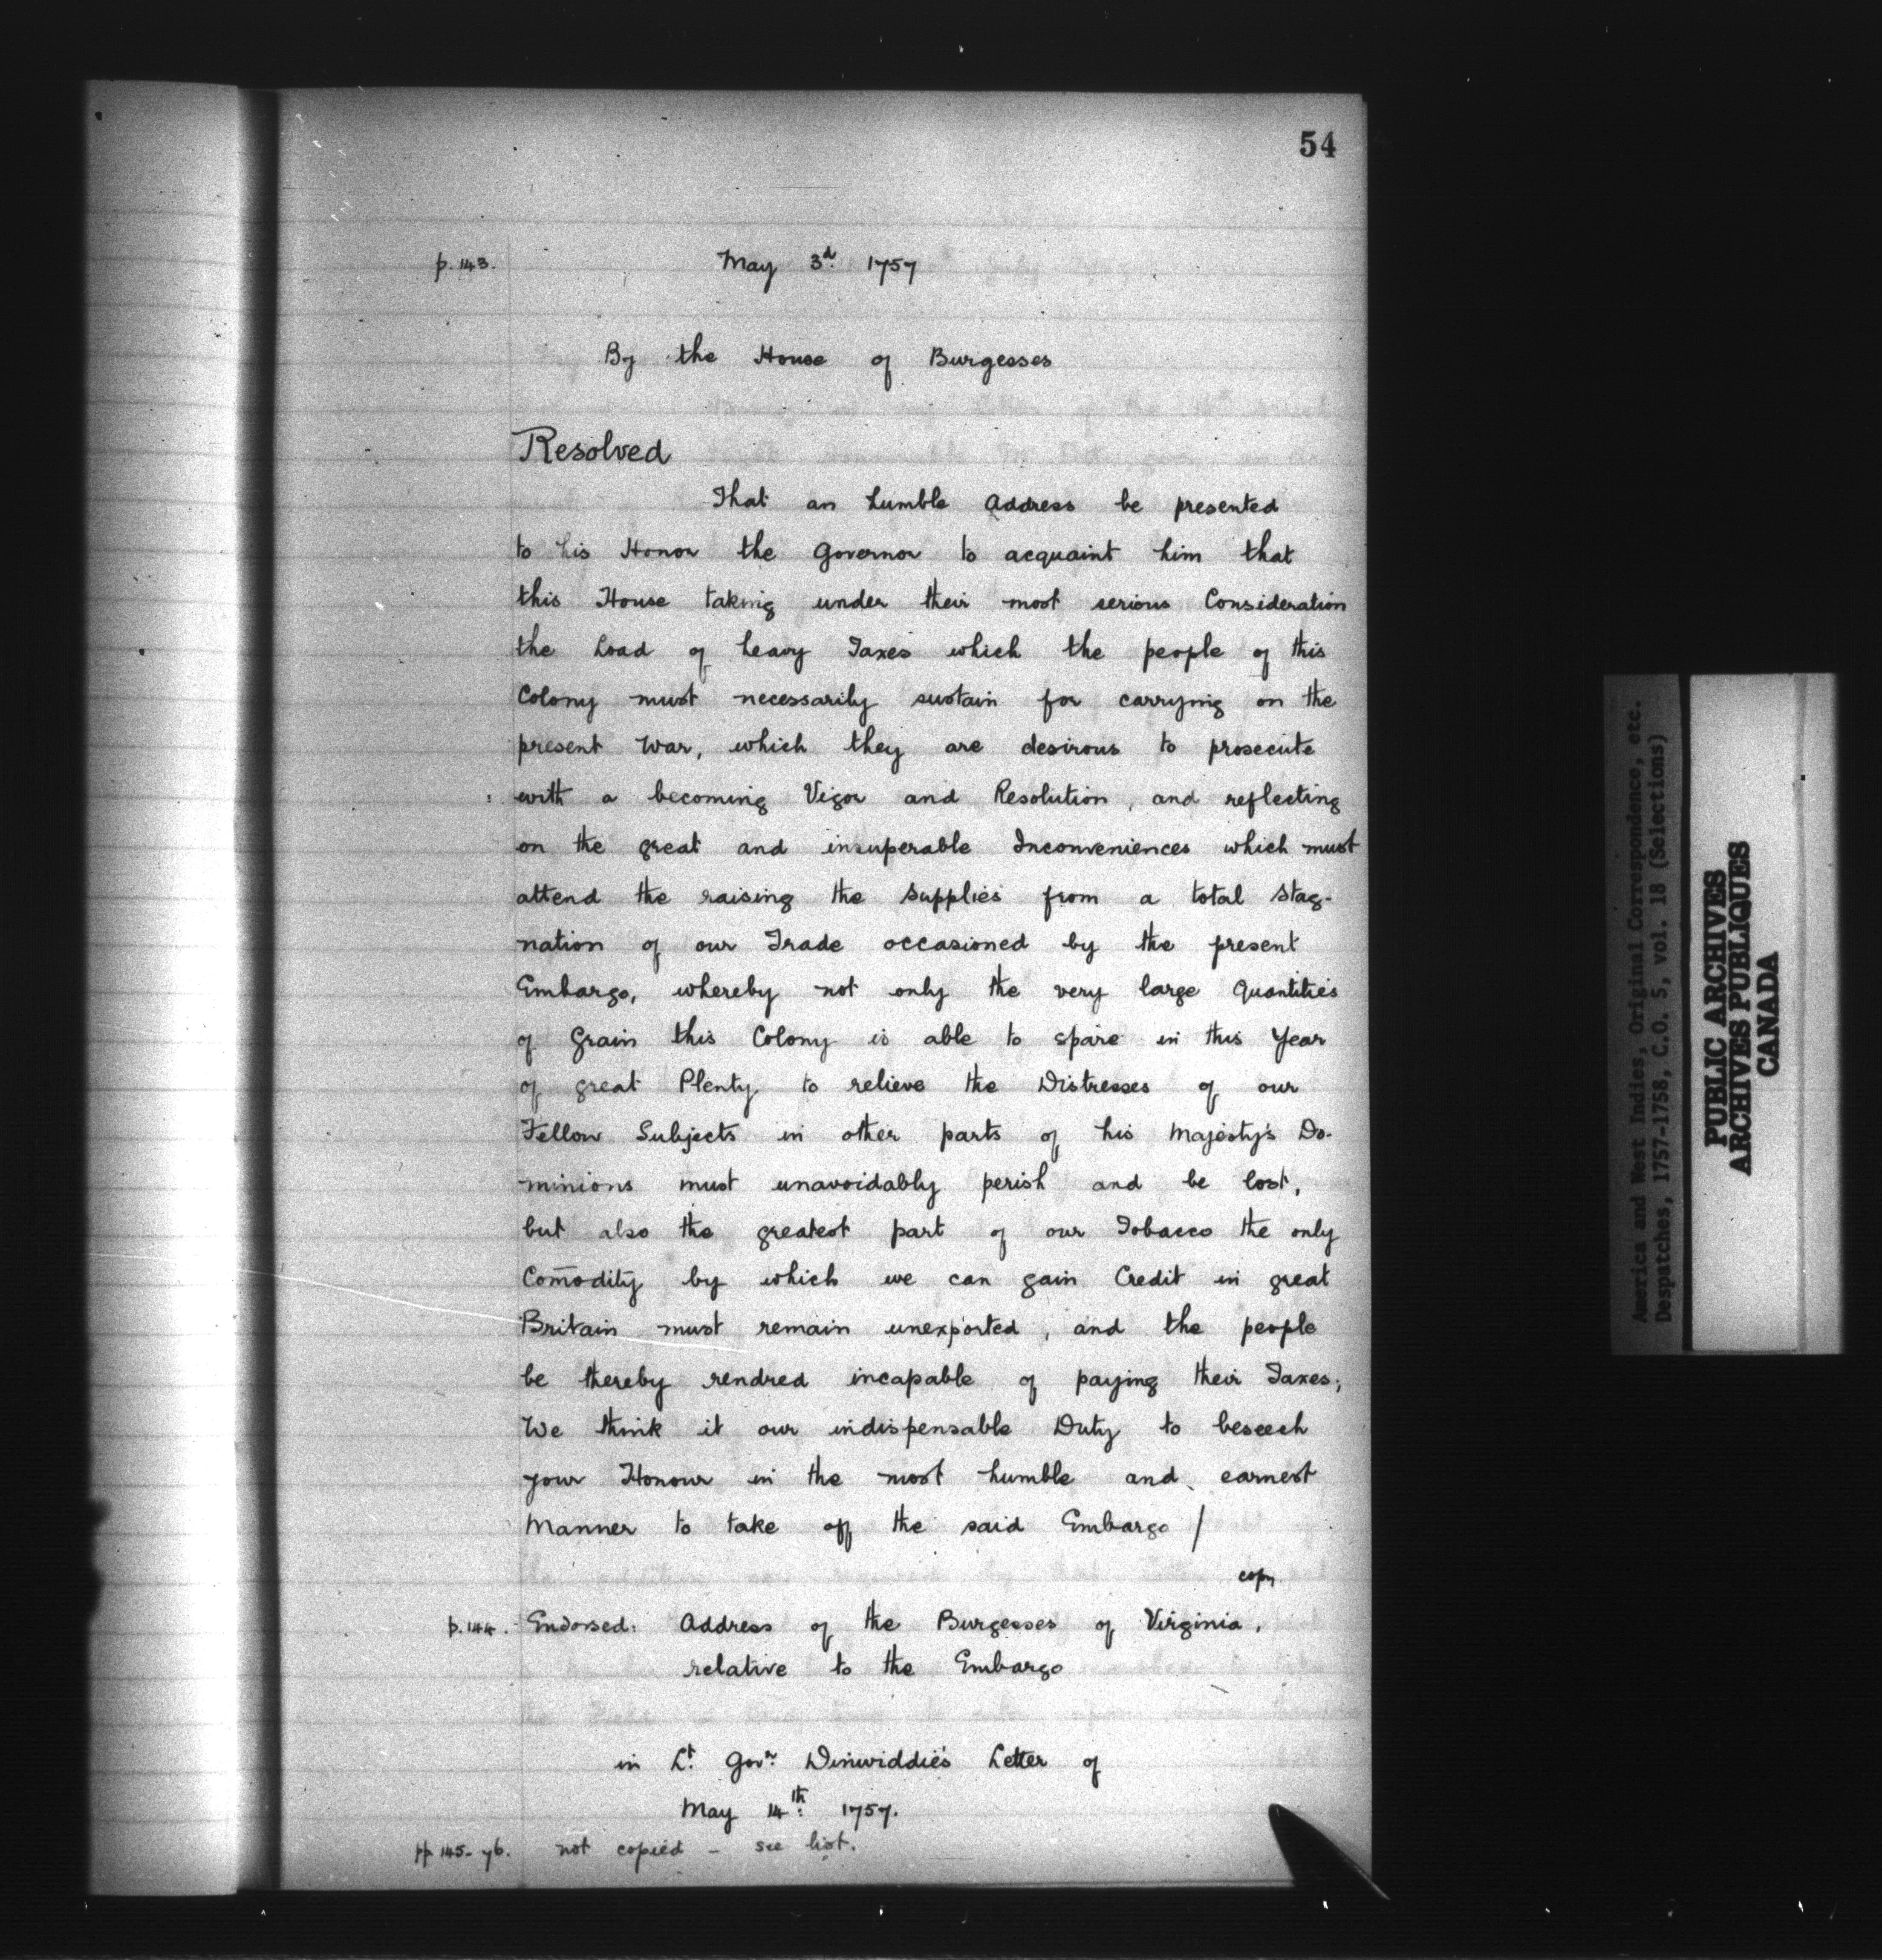 54
p. 143. May 3d. 1757
By the House of Burgesses
Resolved
That an humble Address be presented
to his Honor the Governor to acquaint him that
this House taking under their most serious Consideration
the Load of heavy Taxes which the people of this
Colony must necessarily sustain for carrying on the
present War, which they are desirous to prosecute
with a becoming Vigor and Resolution, and reflecting
on the great and insuperable Inconveniences which must
attend the raising the Supplies from a total Stag-
nation of our Trade occasioned by the present
Embargo, whereby not only the very large Quantities
of Grain this Colony is able to spare in this Year
of great Plenty to relieve the Distresses of our
Fellow Subjects in other parts of his Majesty's Do-
minions must unavoidably perish and be lost,
but also the greatest part of our Tobacco the only
Com̄odity by which we can gain Credit in great
Britain must remain unexported, and the people
be thereby rendred incapable of paying their Taxes;
We think it our indispensable Duty to beseech
your Honour in the most humble and earnest
Manner to take off the said Embargo /
copy
p. 144. Endorsed: Address of the Burgesses of Virginia,
relative to the Embargo
in Lt. Govr. Dinwiddie's Letter of
May 14th: 1757.
pp 145-76. not copied - see list.
America and West Indies, Original Correspondence, etc.
Despatches, 1757-1758, C.O. 5, vol. 18 (Selections)
PUBLIC ARCHIVES
ARCHIVES PUBLIQUES
CANADA